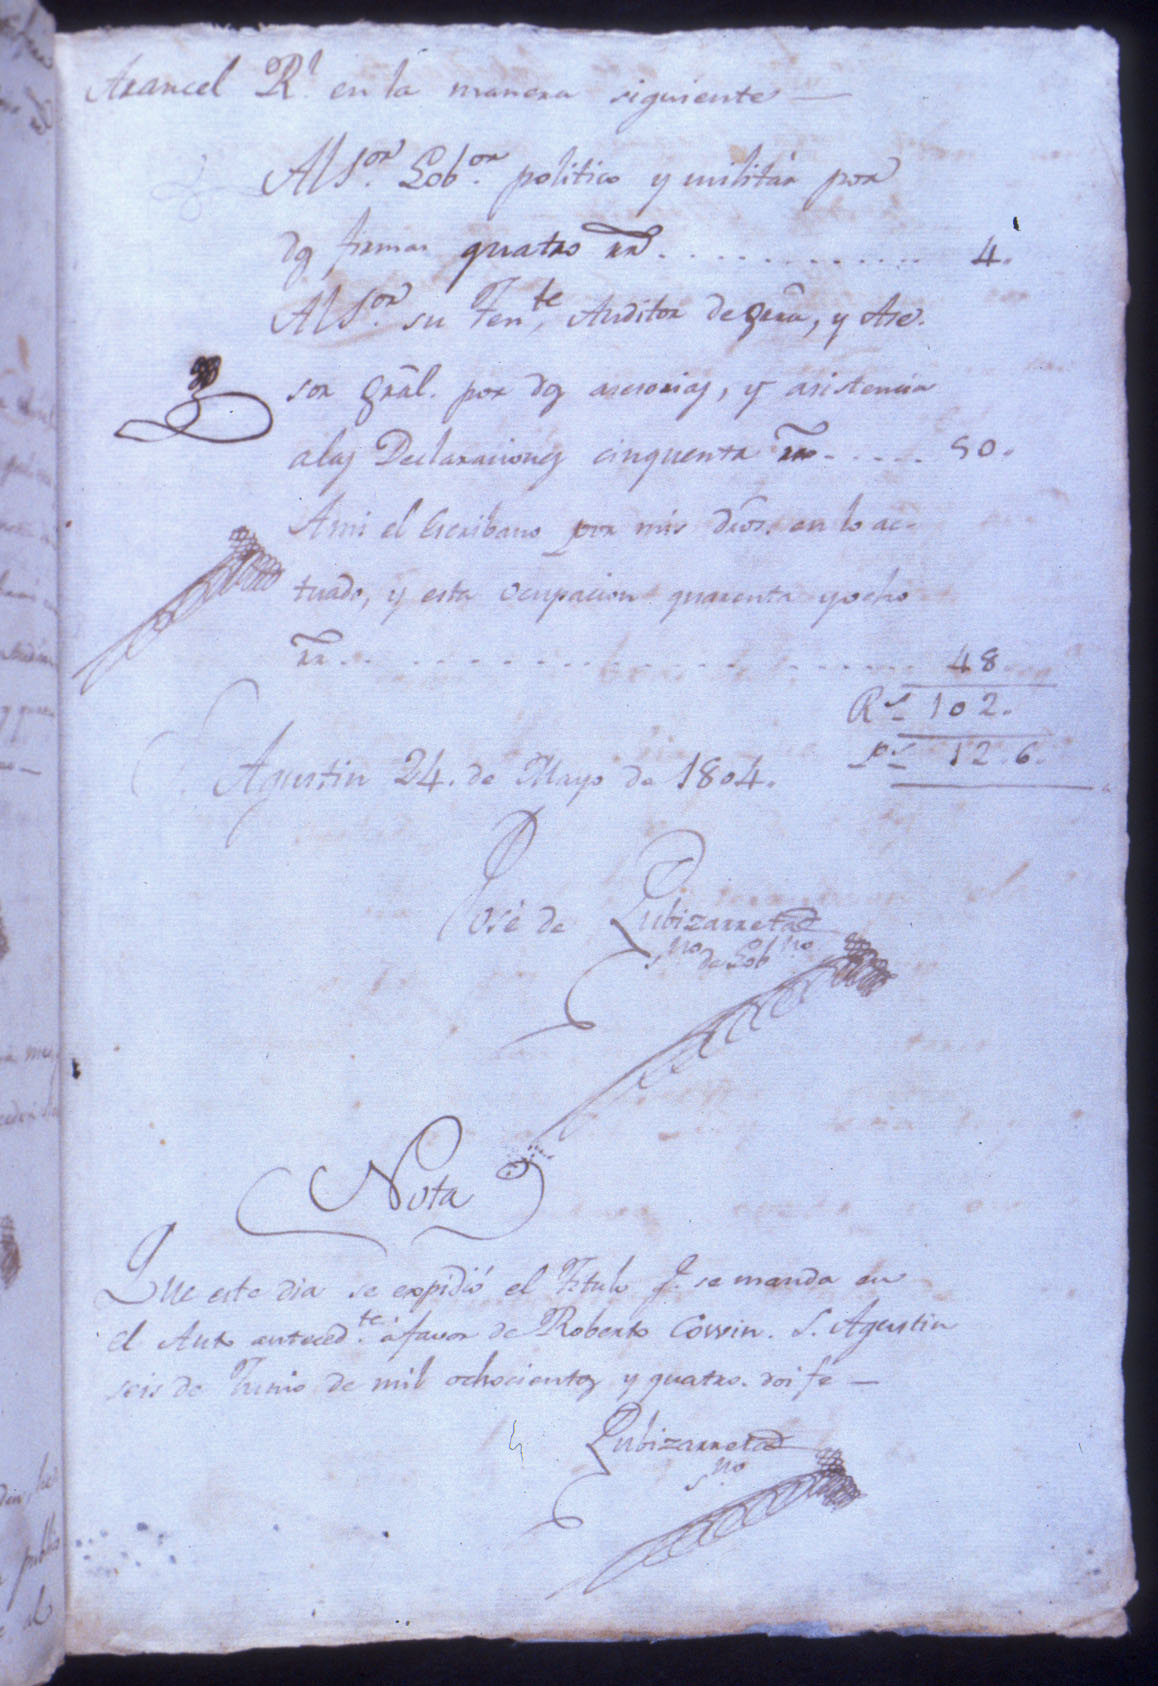 Arancel Rl. en la manera siguiente —
Al Sor. Gobor. politico y militar por
dos firmas quatro rrs. . . . . . . . . . . . 4.
Al Sor. su Tente. Auditor de Gerra, y Ase-
sor Gral. por dos asesorias, y asistencia
alas Declaraciones cinquenta rrs. . . . . . 50.
Ami el Escribano por mis dros. en lo ac-
tuado, y esta ocupacion quarenta yocho
rr. . . . . . . . . . . . . . . . . . . 48
Rs. 102.
Ps. 12.6.
Agustin 24. de Mayo de 1804.
José de Zubizarreta
Sno de Gobno
Nota
Que este dia se expidió el Titulo q. se manda en
el Auto anteced.te áfavor de Roberto Cowin. S. Agustin
seis de Junio de mil ochocientos y quatro. doi fe —
Zubizarreta
Sno